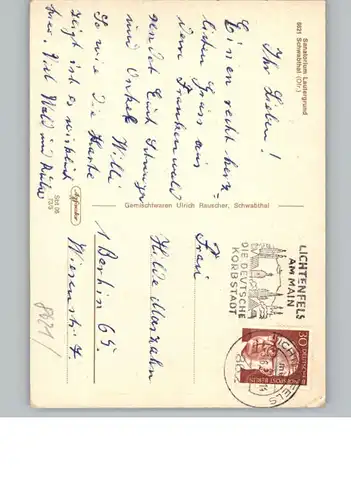 Sanatorium Lautergrund
8621 Schwabthal (Ofr.)
Ihr Lieben!
Einen recht herz-
lichen Gruss aus
dem Frankenwald
sendet Euch Schwager
und Onkel Willi
So wie die Karte
zeigt ist es wirklich
hier. Viel Wald und Ruhe
Gemischtwaren Ulrich Rauscher, Schwabthal
LICHTENFELS
AM MAIN
DIE DEUTSCHE
KORBSTADT
30
Frau
Hilde
1 Berlin 65
Wiesenstr.
8621/